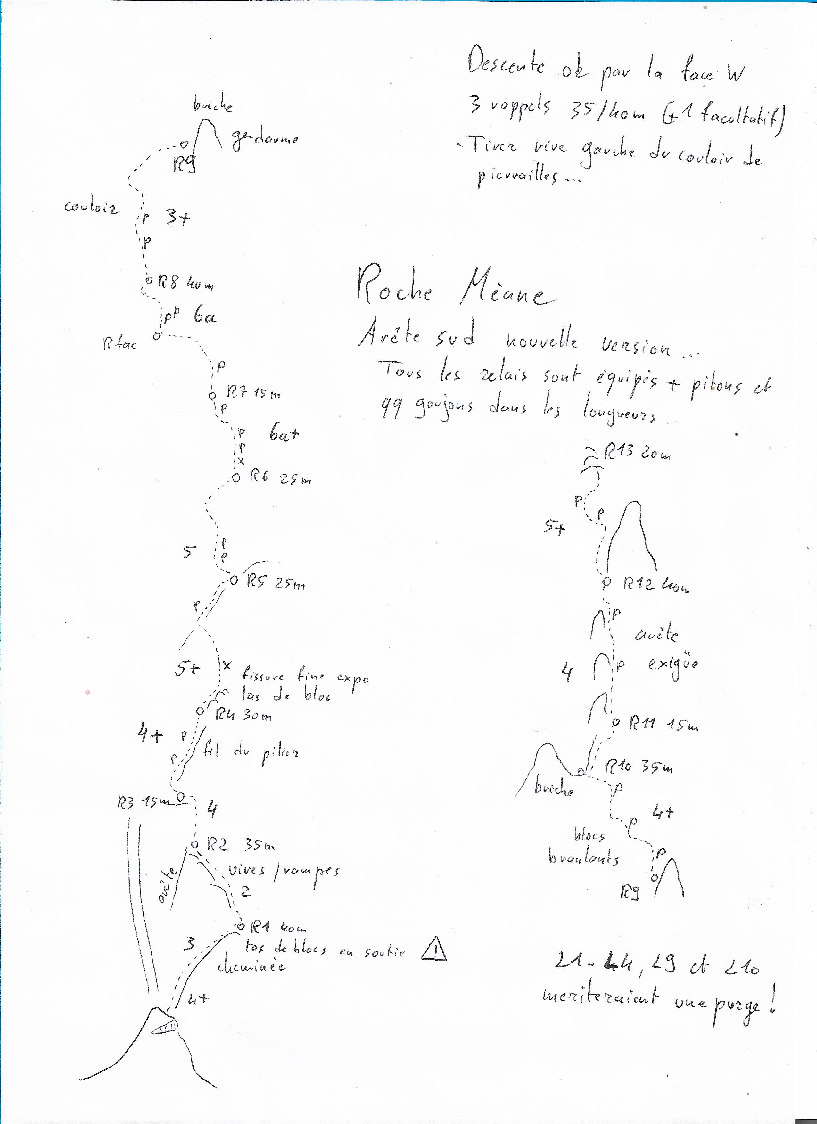 Descente ok par la face W
3 rappels 35/40m (+1 facultatif)
- Tirer rive gauche du couloir de
pierrailles...
Roche Méane
Arête sud nouvelle version...
Tous les relais sont équipés + pitons et
qq goujons dans les longueurs...
brèche
gendarme
R9
couloir
P 3+
P
R8 40m
PP 6a
R fac
P
R7 15m
P
P 6a+
P
x
R6 25m
5 P
P
R5 25m
P
5+ x fissure fine expo
tas de bloc
R4 30m
4+ P
P fil du pilier
R3 15m
4
R2 35m
arête
rives / rampes
2
R1 40m
3 tas de blocs en sortie
cheminée
4+
R13 20m
P
P
5+
R12 40m
P
arête
4 P exigüe
R11 15m
R10 35m
brèche
P
4+
P
blocs
branlants
P
R9
L1-L4, L9 et L10
meriteraient une purge !